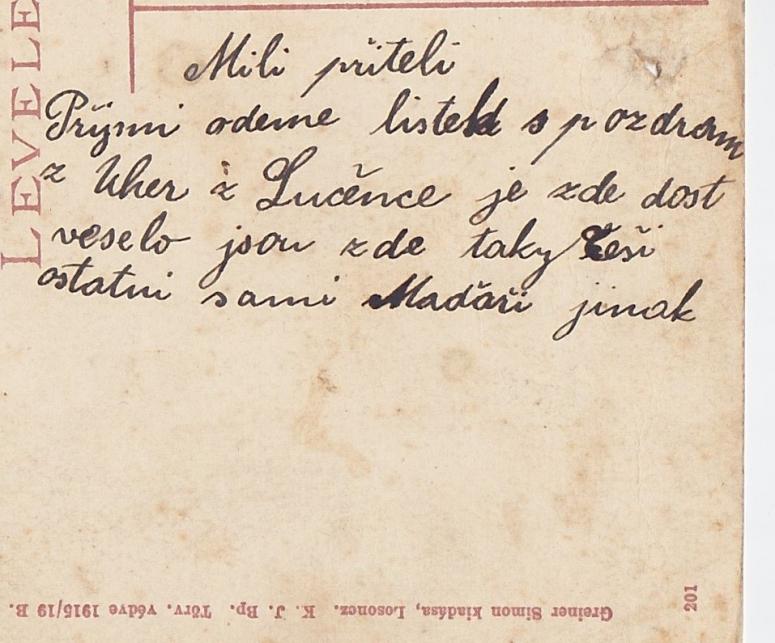 LEVELE
Mili přiteli
Přijmi odeme listek s pozdram
z Uher z Lučence je zde dost
veselo jsou zde taky Češi
ostatni sami Maďaři jinak
Greiner Simon kiadása, Losoncz. K. J. Bp. Törv. védve 1915/19 B.
201